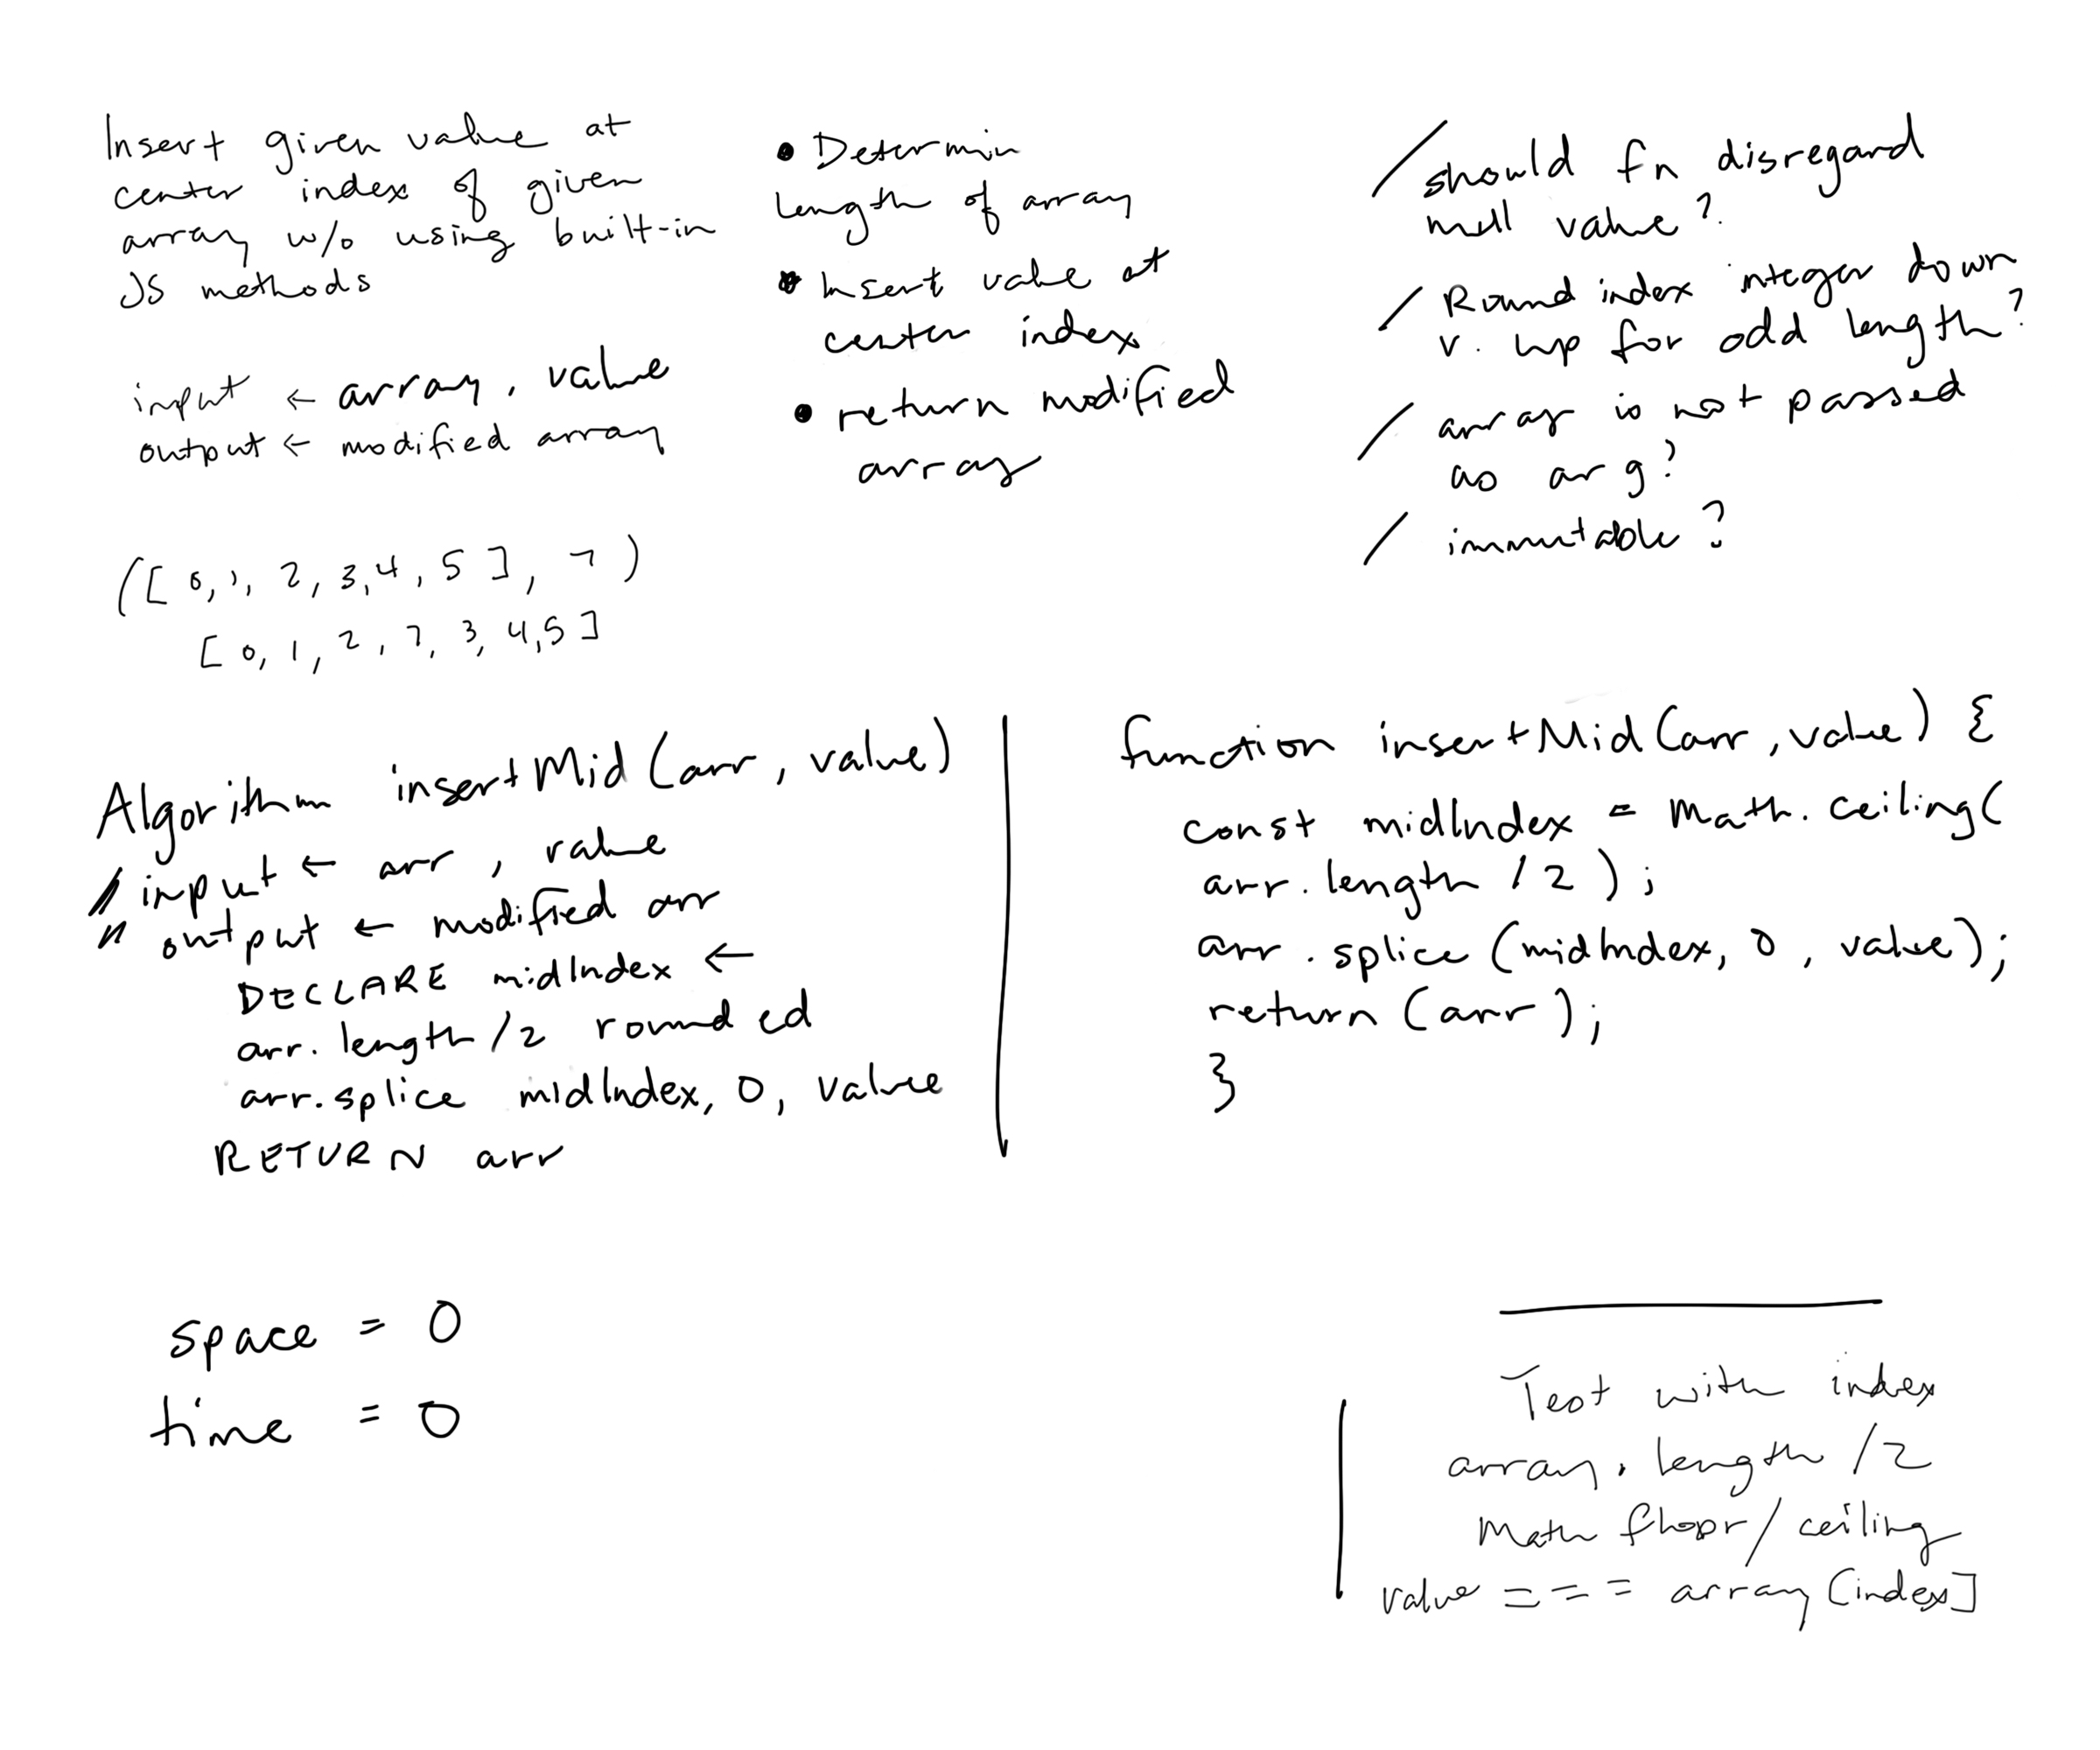 Insert given value at
center index of given
array w/o using built-in
JS methods
input ← array, value
output ← modified array
([0, 1, 2, 3, 4, 5], 7)
[0, 1, 2, 7, 3, 4, 5]
• Determin
length of array
• Insert value at
center index
• return modified
array
/ should fn disregard
null value?
/ Round index integer down
v. up for odd length?
/ array is not passed
as arg?
/ immutable?
Algorithm insertMid (arr, value)
// input ← arr, value
// output ← modified arr
DECLARE midIndex ←
arr.length/2 rounded
arr.splice midIndex, 0, value
RETURN arr
function insertMid(arr, value) {
const midIndex = Math.ceiling(
arr.length / 2);
arr.splice(midIndex, 0, value);
return (arr);
}
space = O
time = O
Test with index
array.length /2
Math floor/ceiling
value === array[index]